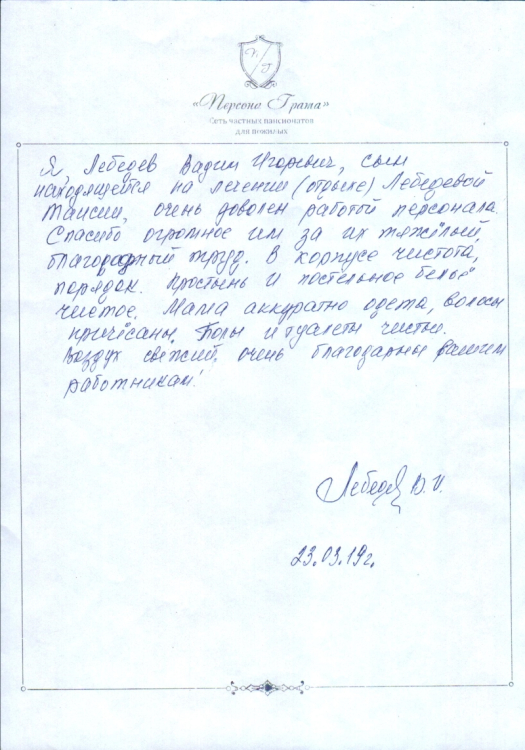 П
Г
«Персона Грата»
Сеть частных пансионатов
для пожилых
Я, Лебедев Вадим Игоревич, сын
находящейся на лечении (отдыхе) Лебедевой
Таисии, очень доволен работой персонала.
Спасибо огромное им за их тяжёлый,
благородный труд. В корпусе чистота,
порядок. Простынь и постельное бельё
чистое. Мама аккуратно одета, волосы
причёсаны. Полы и туалеты чистые.
Воздух свежий, очень благодарны вашим
работникам!
Лебедев В.И.
23.03.19г.